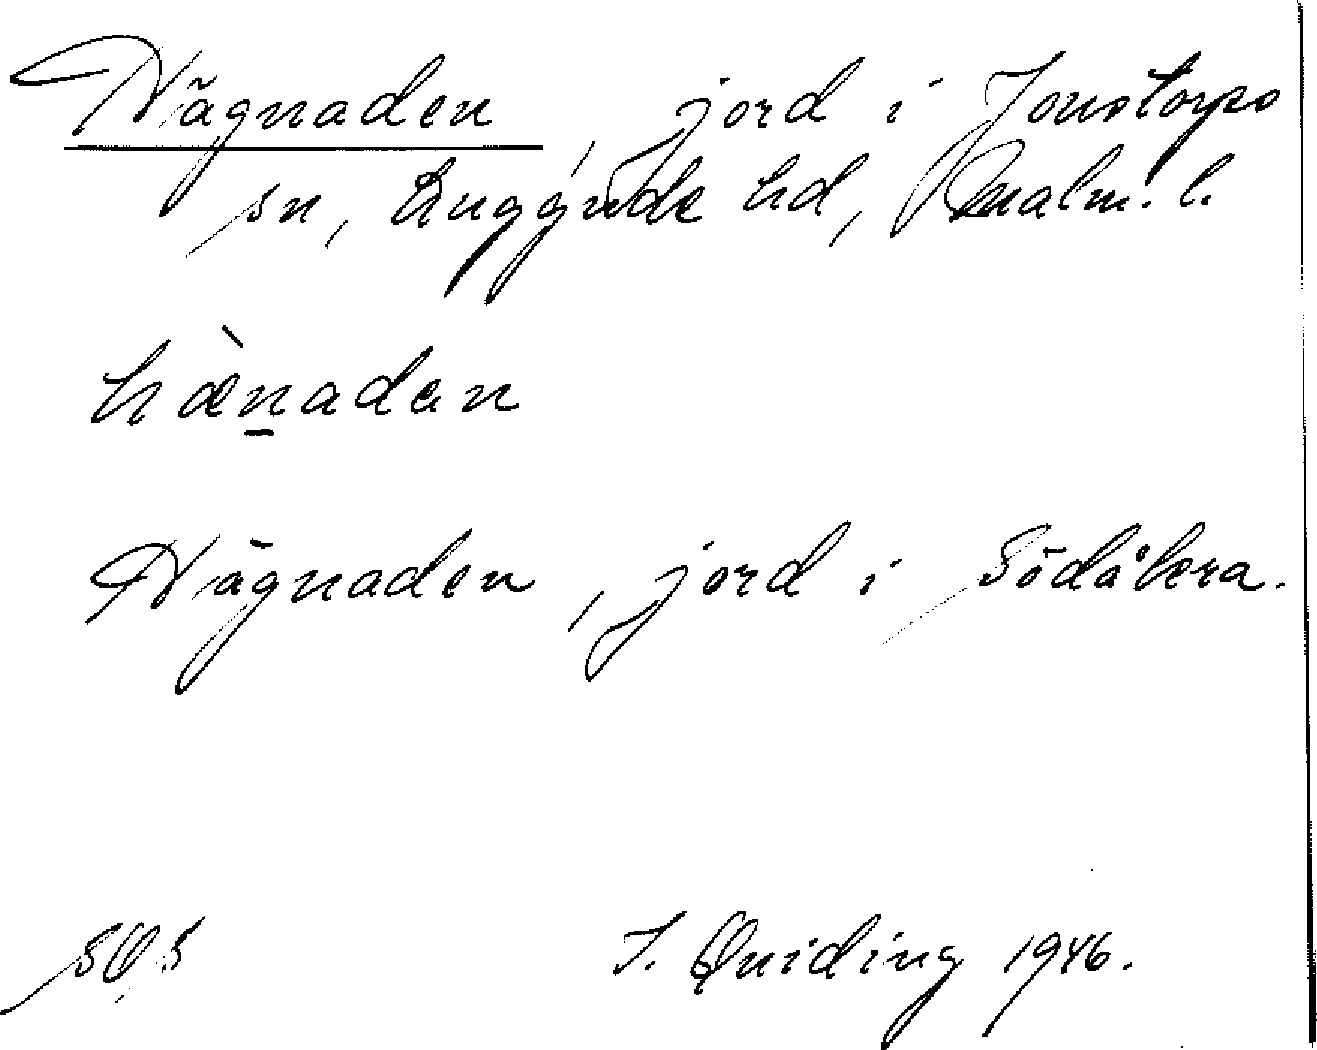 Hägnaden, jord i Jonstorps
sn, Luggude hd, Malm. l.
hæ̀n̠adan
Hägnaden, jord i Södåkra.
I. Quiding 1946.